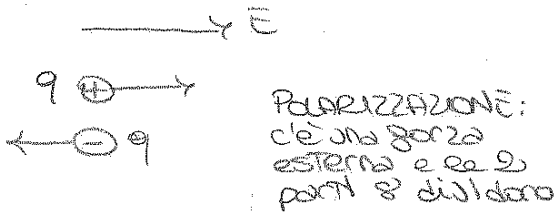 E
q +
- q
POLARIZZAZIONE:
c'è una forza
esterna e le 2
parti si dividono